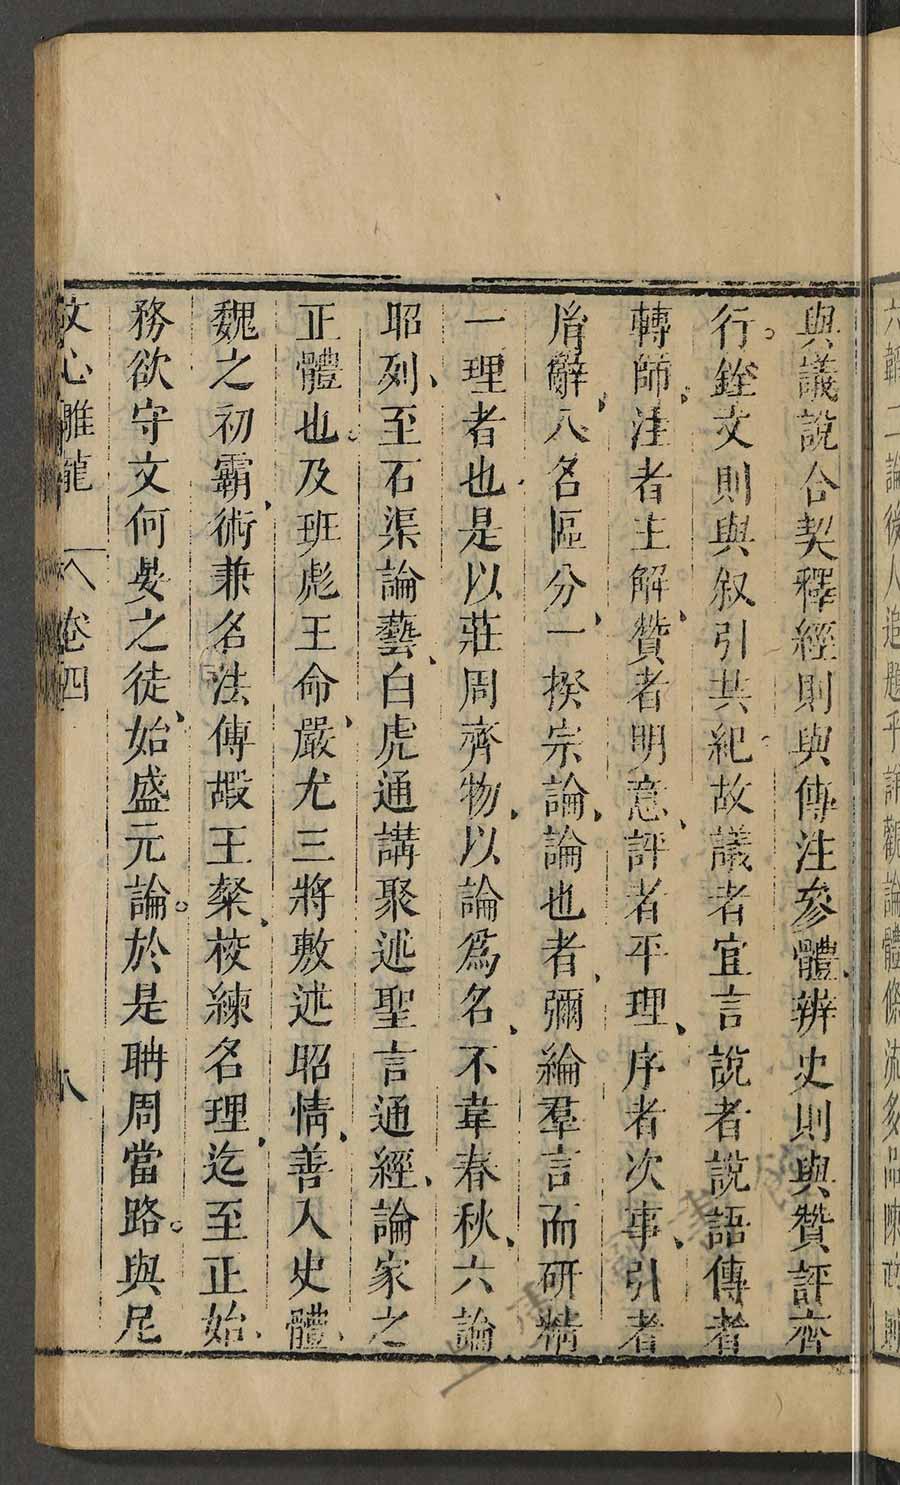 六韜二論後人追題乎詳觀論體條流多品陳政則
與議說合契釋經則與傳注參體辨史則與贊評齊
行銓文則與叙引共紀故議者宜言說者說語傳者
轉師注者主解贊者明意評者平理序者次事引者
胤辭八名區分一揆宗論論也者彌綸羣言而研精
一理者也是以莊周齊物以論爲名不韋春秋六論
昭列至石渠論藝白虎通講聚述聖言通經論家之
正體也及班彪王命嚴尤三將敷述昭情善入史體
魏之初霸術兼名法傅嘏王粲校練名理迄至正始
務欲守文何晏之徒始盛元論於是聃周當路與尼
文心雕龍 卷四 八